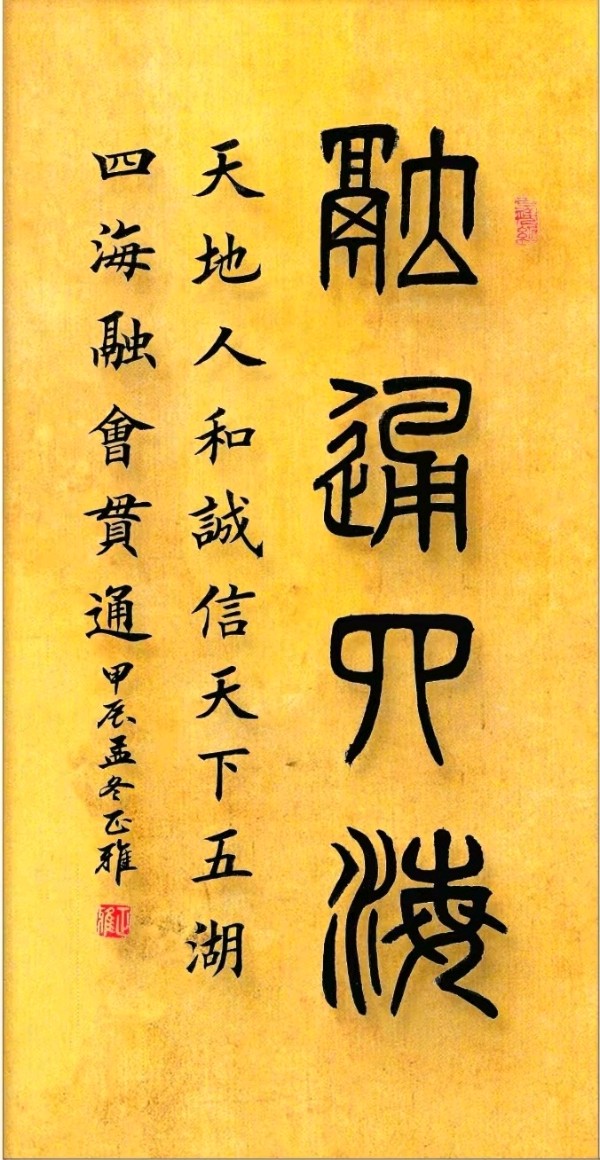 融通四海
天地人和誠信天下五湖
四海融會貫通
甲辰孟冬正雅
正雅